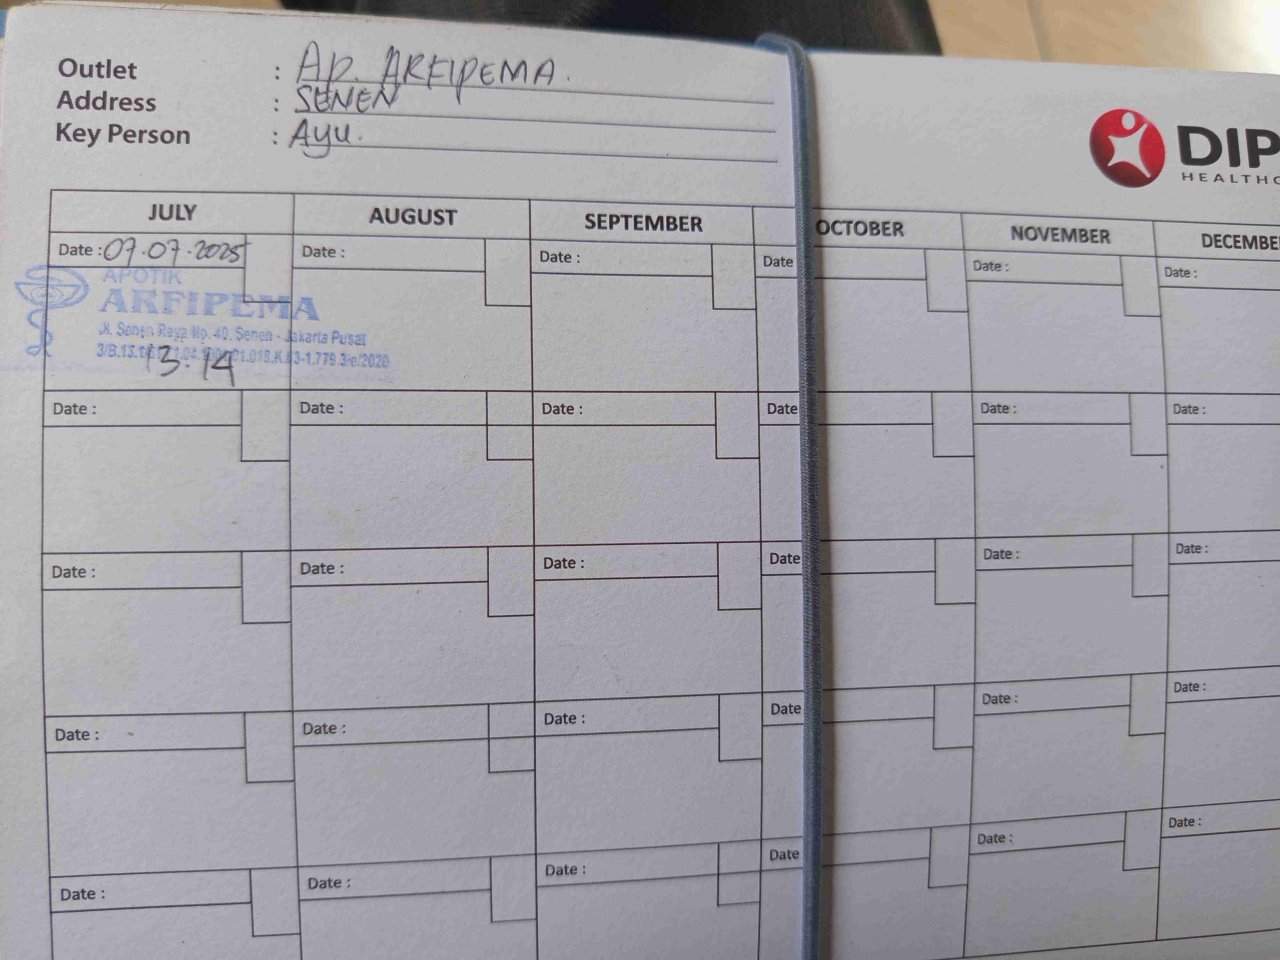 Outlet : AP. ARFIPEMA.
Address : SENEN
Key Person : Ayu.
DIP
HEALTHC
JULY AUGUST SEPTEMBER OCTOBER NOVEMBER DECEMBE
Date : 07.07.2025 Date : Date : Date Date : Date :
APOTIK
ARFIPEMA
Jl. Senen Raya No. 40. Senen - Jakarta Pusat
13.14
Date : Date : Date : Date Date : Date :
Date : Date : Date : Date Date : Date :
Date : Date : Date : Date Date : Date :
Date : Date : Date : Date Date : Date :